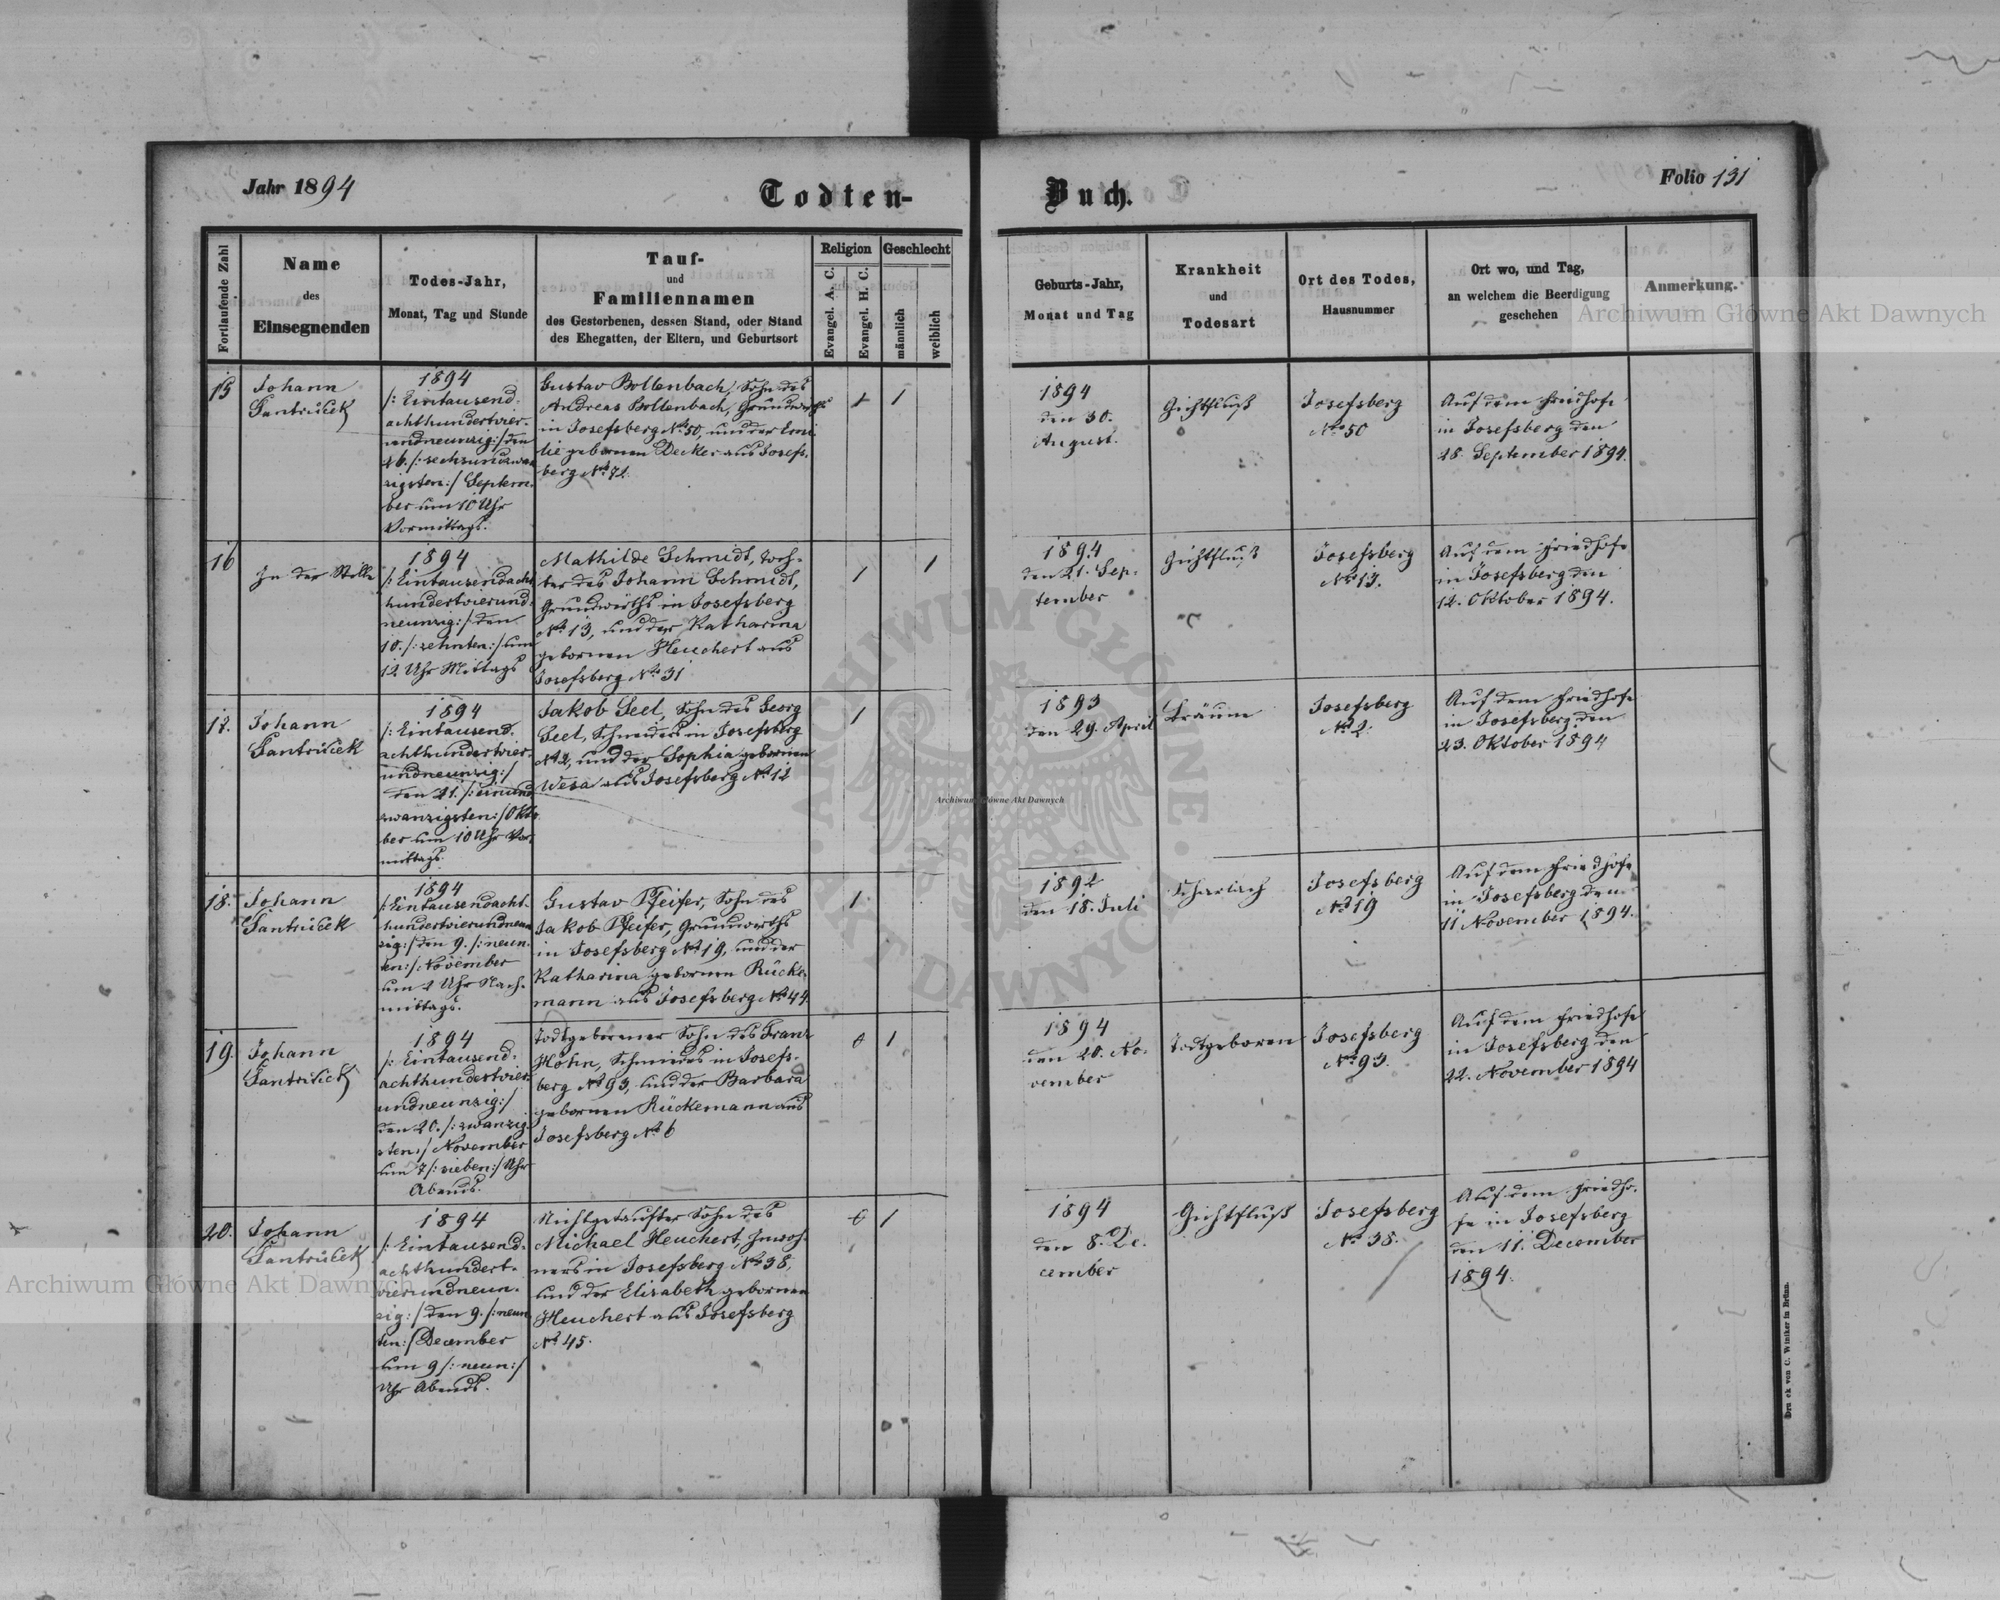 Jahr 1894
Todten-
Buch.
Folio 131
Fortlaufende Zahl
Name
des
Einsegnenden
Todes-Jahr,
Monat, Tag und Stunde
Tauf-
und
Familiennamen
des Gestorbenen, dessen Stand, oder Stand
des Ehegatten, der Eltern, und Geburtsort
Religion
Evangel. A. C.
Evangel. H. C.
Geschlecht
männlich
weiblich
Geburts-Jahr,
Monat und Tag
Krankheit
und
Todesart
Ort des Todes,
Hausnummer
Ort wo, und Tag,
an welchem die Beerdigung
geschehen
Anmerkung.
15
Johann
1894
/: Eintausend-
achthundertvier-
undneunzig :/ den
26. /: sechsundzwan
zigsten :/ Septem-
ber um 10 Uhr
Vormittags.
Gustav Bollenbach, Sohn des
Andreas Bollenbach, Grundwirths
in Josefsberg No 50, und der Emi-
lie gebornen Decker aus Josefs-
berg No 72.
1
1
1894
den 30.
August.
Gichtfluß
Josefsberg
No 50
Auf dem Friedhofe
in Josefsberg den
28. September 1894.
16
In der Stille
1894
/: Eintausendacht
hundertvierund-
neunzig :/ den
10. /: zehnten :/ um
12 Uhr Mittags
Mathilde Schmidt, Toch-
ter des Johann Schmidt,
Grundwirths in Josefsberg
No 13, und der Katharina
gebornen Heuchert aus
Josefsberg No 31
1
1
1894
den 21. Sep-
tember
Gichtfluß
Josefsberg
No 13.
Auf dem Friedhofe
in Josefsberg den
12. Oktober 1894.
17.
Johann
1894
/: Eintausend-
achthundertvier-
undneunzig :/
den 21. /: einund
zwanzigsten :/ Okto
ber um 10 Uhr Vor-
mittags.
Jakob Seel, Sohn des Georg
Seel, Schneiders in Josefsberg
No 2, und der Sophia gebornen
Wesa aus Josefsberg No 12
1
1893
den 29. April
Bräune
Josefsberg
No 2.
Auf dem Friedhofe
in Josefsberg den
23. Oktober 1894
18.
Johann
1894
/: Eintausendacht-
hundertvierundneun
zig :/ den 9. /: neun-
ten :/ November
um 2 Uhr Nach-
mittags.
Gustav Pfeifer, Sohn des
Jakob Pfeifer, Grundwirths
in Josefsberg No 19, und der
Katharina gebornen Rücke-
mann aus Josefsberg No 44.
1
1892
den 18. Juli
Scharlach
Josefsberg
No 19
Auf dem Friedhofe
in Josefsberg den
11 November 1894.
19.
Johann
1894
/: Eintausend-
achthundertvier-
undneunzig :/
den 20. /: zwanzig-
sten :/ November
um 7 /: sieben :/ Uhr
Abends.
Todtgeborener Sohn des Franz
Höhn, Schmiedes in Josefs-
berg No 93, und der Barbara
gebornen Rückemann aus
Josefsberg No 6
0
1
1894
den 20. No-
vember
Todtgeboren
Josefsberg
No 93.
Auf dem Friedhofe
in Josefsberg den
22. November 1894
20.
Johann
1894
/: Eintausend-
achthundert-
vierundneun-
zig :/ den 9. /: neun
ten :/ December
um 9 /: neun :/
Uhr Abends.
Nichtgetaufter Sohn des
Michael Heuchert, Inwoh-
ners in Josefsberg No 38,
und der Elisabeth gebornen
Heuchert aus Josefsberg
No 45.
0
1
1894
den 8. De-
cember
Gichtfluß
Josefsberg
No 38.
Auf dem Friedho-
fe in Josefsberg
den 11. December
1894.
Druck von C. Winiker in Brünn.
Archiwum Główne Akt Dawnych
Archiwum Główne Akt Dawnych
Archiwum Główne Akt Dawnych
ARCHIWUM GŁÓWNE · AKT DAWNYCH ·